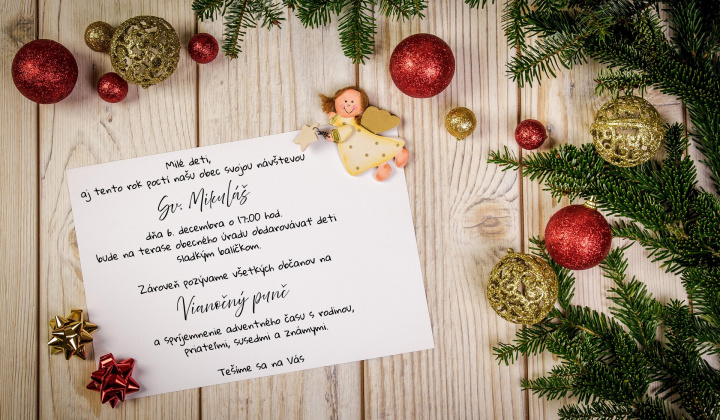 Milé deti,
aj tento rok poctí našu obec svojou návštevou
Sv. Mikuláš
dňa 6. decembra o 17:00 hod.
bude na terase obecného úradu obdarovávať deti
sladkým balíčkom.
Zároveň pozývame všetkých občanov na
Vianočný punč
a spríjemnenie adventného času s rodinou,
priateľmi, susedmi a známymi.
Tešíme sa na Vás